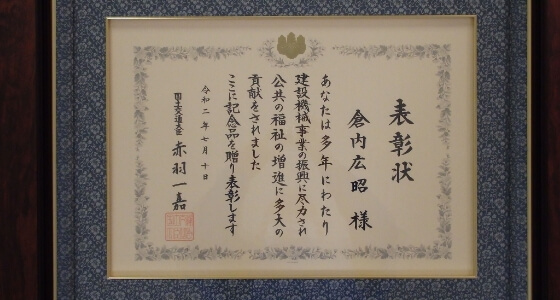 表彰状
倉内広昭 様
あなたは多年にわたり
建設機械事業の振興に尽力され
公共の福祉の増進に多大の
貢献をされました
ここに記念品を贈り表彰します
令和二年七月十日
国土交通大臣 赤羽一嘉